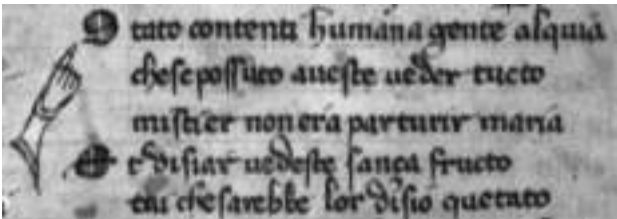 S tato contenti humana gente alquia
che se possuto aueste ueder tucto
mistier non era parturir maria
E t disiar uedeste sança fructo
tai che sarebbe lor disio quetato